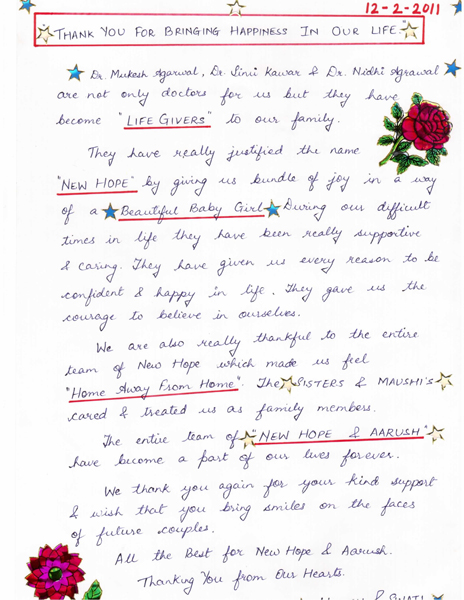 12-2-2011
"THANK YOU FOR BRINGING HAPPINESS IN OUR LIFE."
Dr. Mukesh Agarwal, Dr. Simi Kawar & Dr. Nidhi Agrawal
are not only doctors for us but they have
become "LIFE GIVERS" to our family.
They have really justified the name
"NEW HOPE" by giving us bundle of joy in a way
of a Beautiful Baby Girl. During our difficult
times in life they have been really supportive
& caring. They have given us every reason to be
confident & happy in life. They gave us the
courage to believe in ourselves.
We are also really thankful to the entire
team of New Hope which made us feel
"Home Away From Home". The SISTERS & MAUSHI'S
cared & treated us as family members.
The entire team of "NEW HOPE & AARUSH"
have become a part of our lives forever.
We thank you again for your kind support
& wish that you bring smiles on the faces
of future couples.
All the Best for New Hope & Aarush.
Thanking You from Our Hearts.